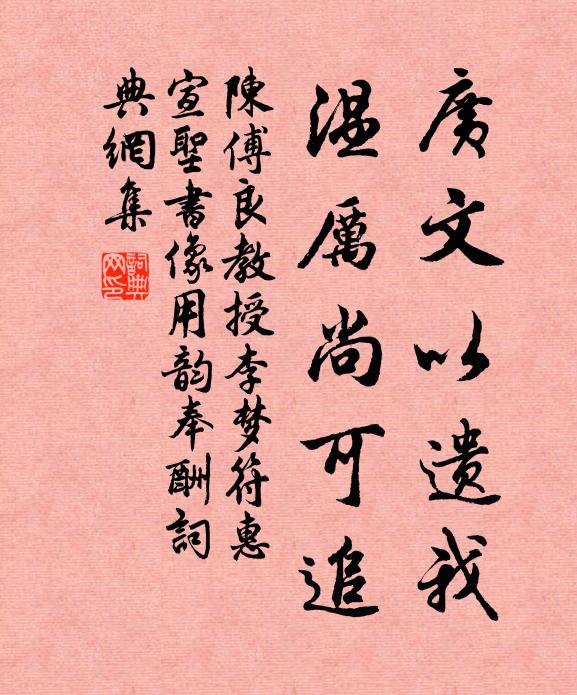 廣文以遺我
温厲尚可追
陳傅良教授李梦符惠
宣聖書像用韵奉酬詞
典網集
詞典网印